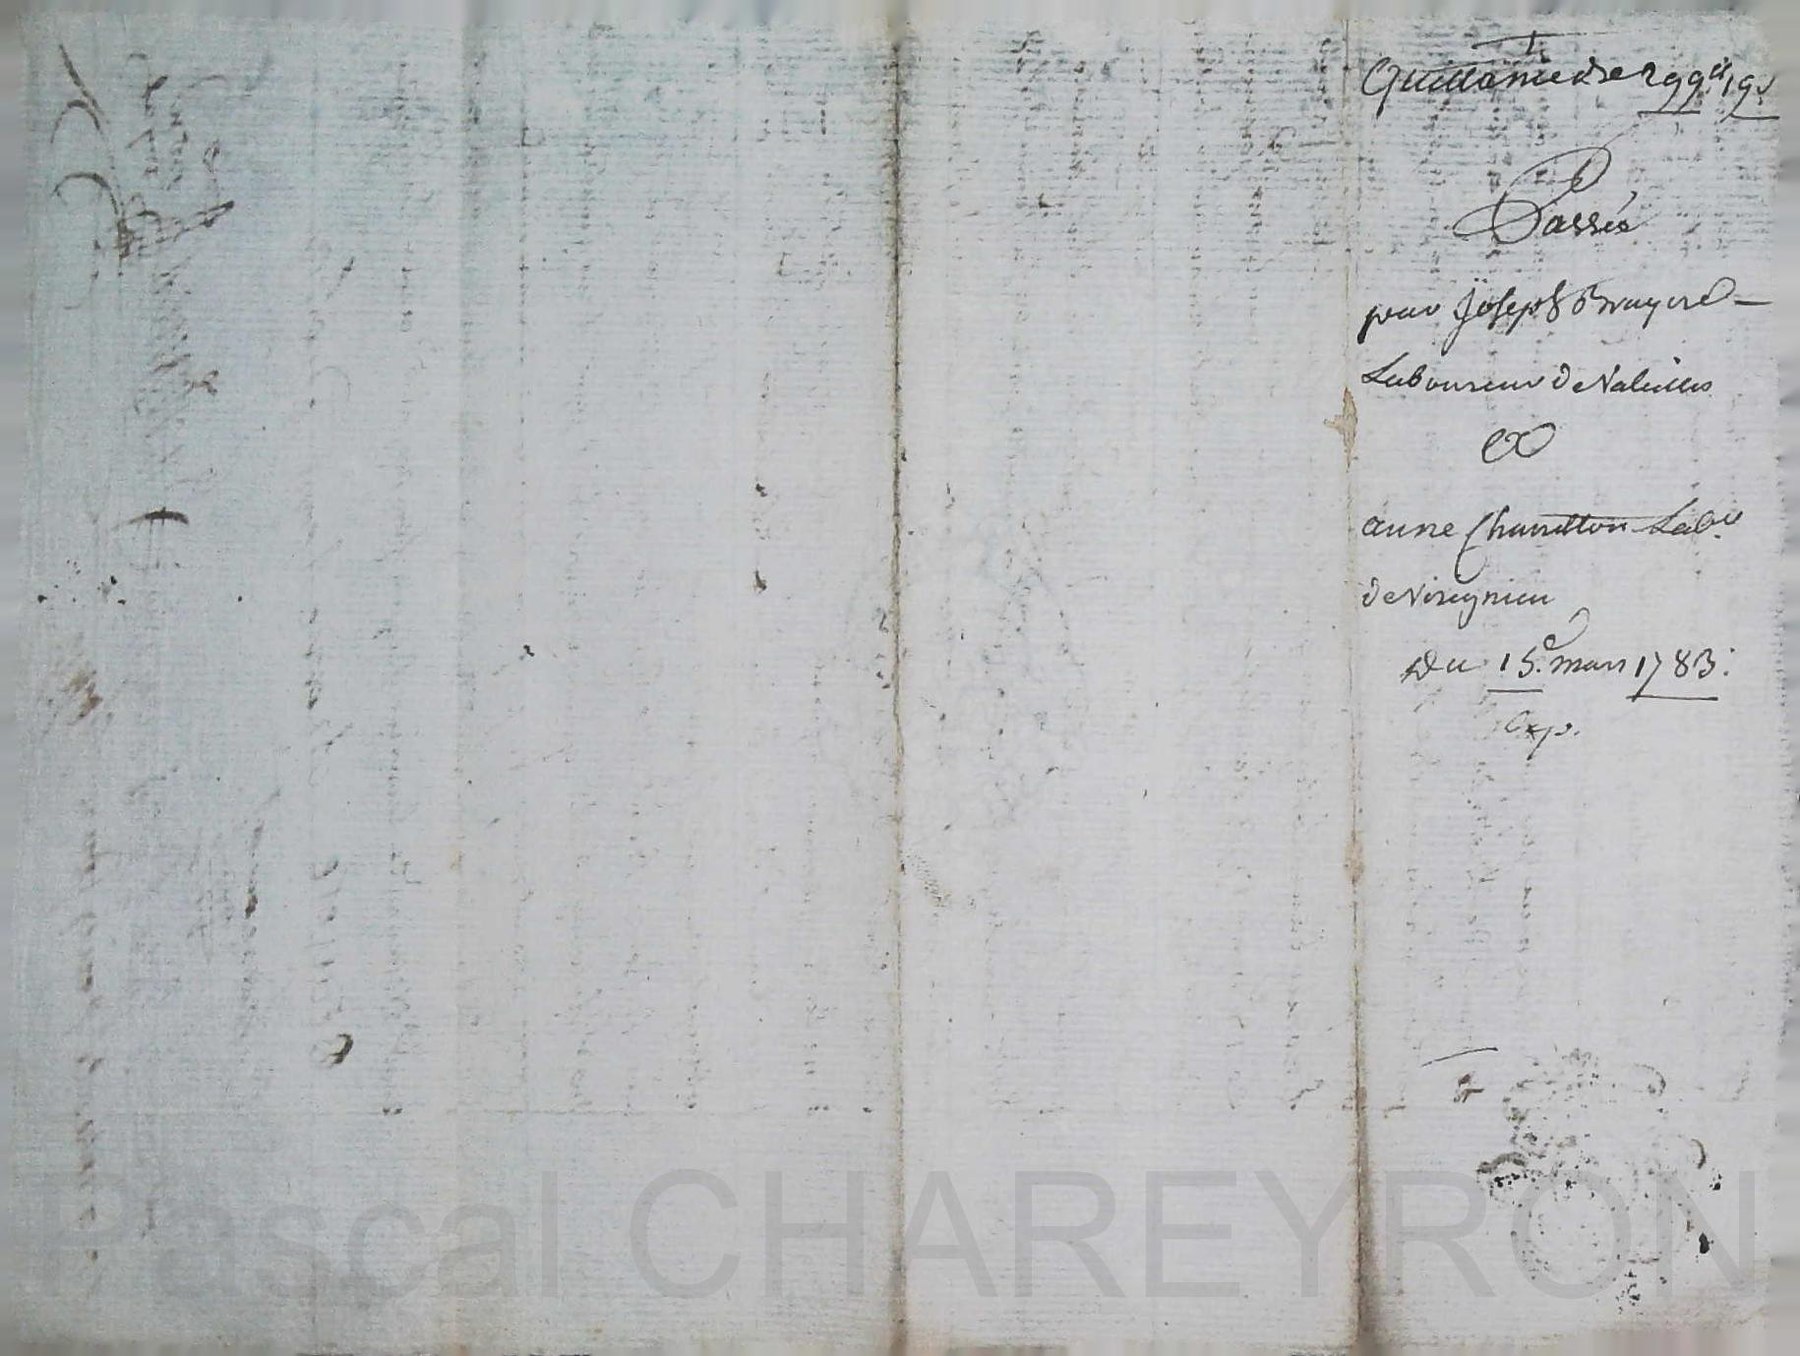 Quittance de 299ll 19s
Passée
par Joseph Bruyere
Laboureur de Valeilles
Et
anne Labr
de Virignieu
Du 15e mars 1783:
Exp.
Pascal CHAREYRON